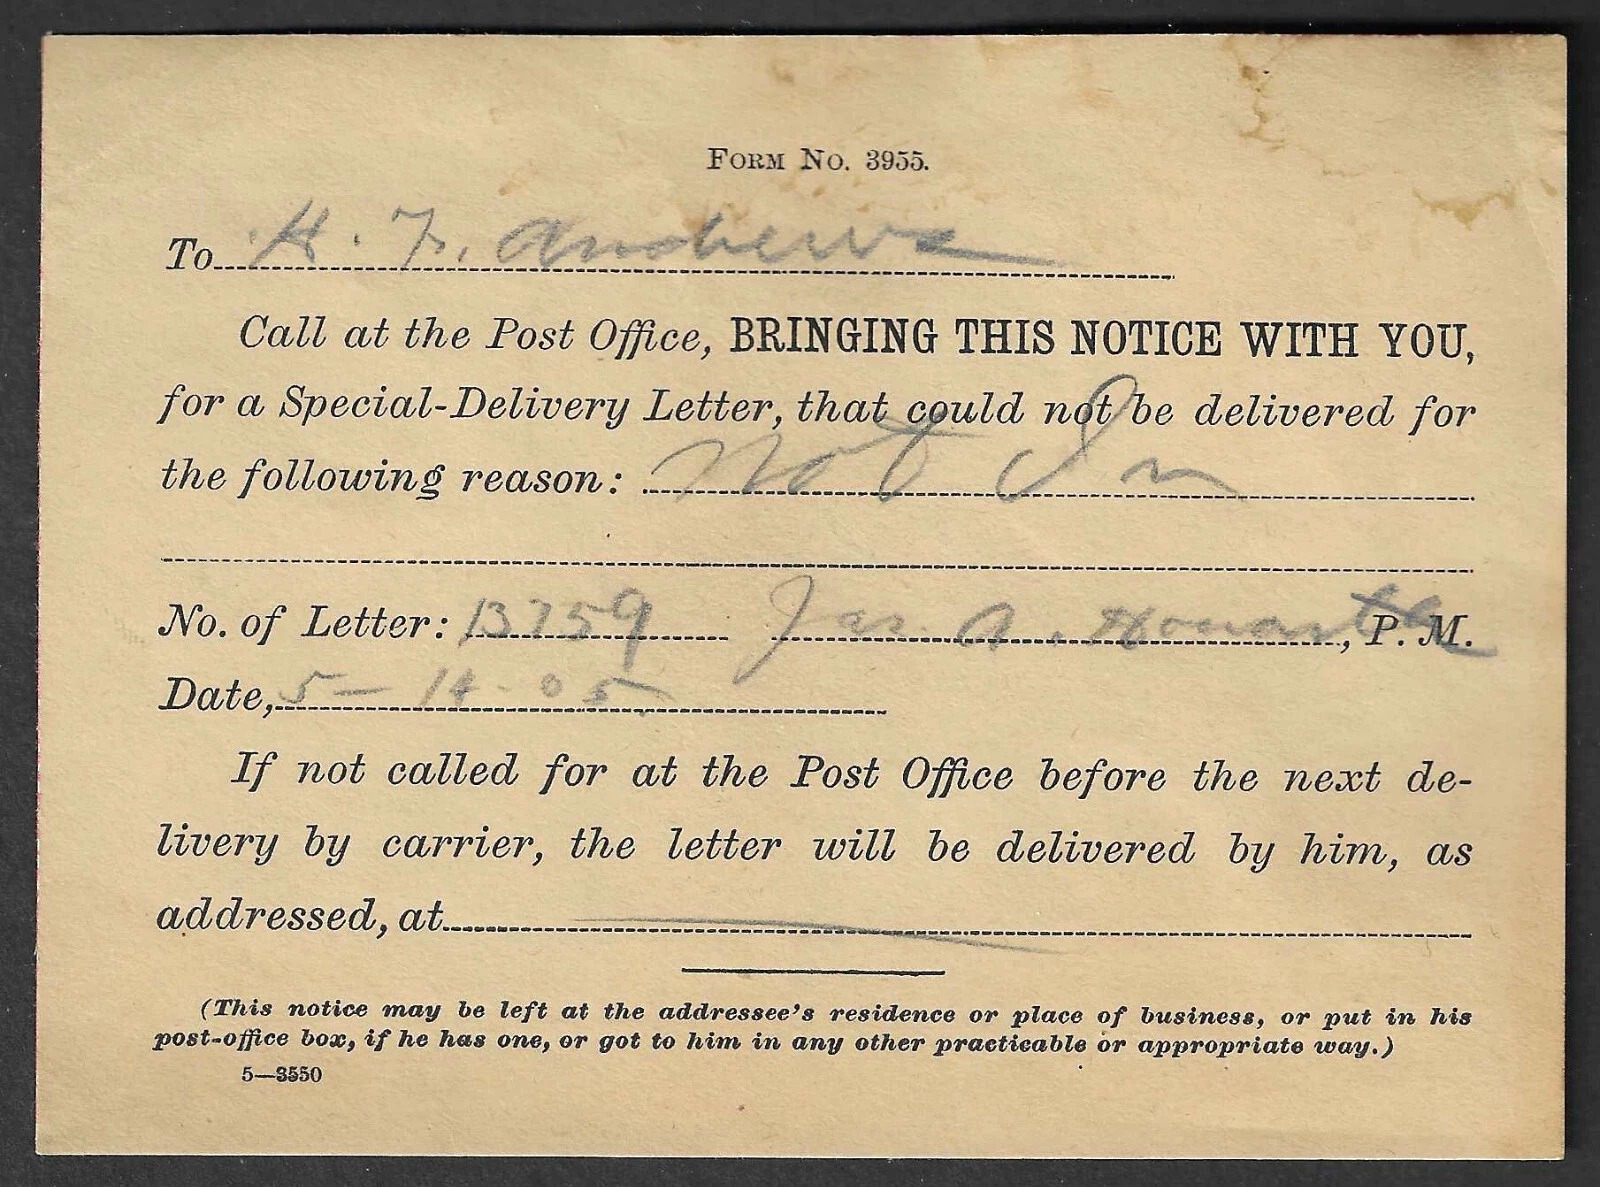 FORM NO. 3955.
To H. F. Andrews
Call at the Post Office, BRINGING THIS NOTICE WITH YOU,
for a Special-Delivery Letter, that could not be delivered for
the following reason: Not In
No. of Letter: 13759 Jas. A. Howarth, P. M.
Date, 5-14-05
If not called for at the Post Office before the next de-
livery by carrier, the letter will be delivered by him, as
addressed, at
(This notice may be left at the addressee's residence or place of business, or put in his
post-office box, if he has one, or got to him in any other practicable or appropriate way.)
5—3550